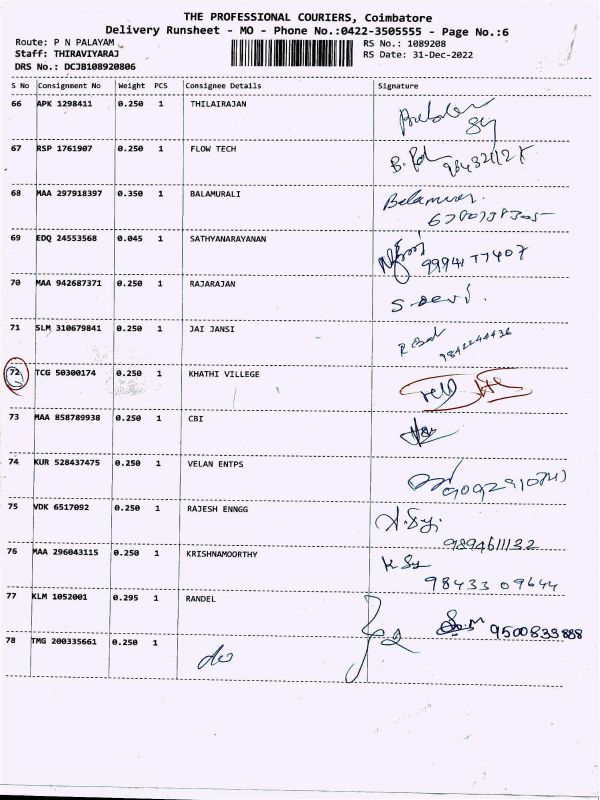 THE PROFESSIONAL COURIERS, Coimbatore
Delivery Runsheet - MO - Phone No.:0422-3505555 - Page No.:6
Route: P N PALAYAM RS No.: 1089208
Staff: THIRAVIYARAJ RS Date: 31-Dec-2022
DRS No.: DCJB108920806
S No Consignment No Weight PCS Consignee Details Signature
66 APK 1298411 0.250 1 THILAIRAJAN
67 RSP 1761907 0.250 1 FLOW TECH
68 MAA 297918397 0.350 1 BALAMURALI
69 EDQ 24553568 0.045 1 SATHYANARAYANAN
9994177407
70 MAA 942687371 0.250 1 RAJARAJAN
S. Devi.
71 SLM 310679841 0.250 1 JAI JANSI
72 TCG 50300174 0.250 1 KHATHI VILLEGE
73 MAA 858789938 0.250 1 CBI
74 KUR 528437475 0.250 1 VELAN ENTPS
75 VDK 6517092 0.250 1 RAJESH ENNGG
9894611132
76 MAA 296043115 0.250 1 KRISHNAMOORTHY
98433 09644
77 KLM 1052001 0.295 1 RANDEL
9500833888
78 TMG 200335661 0.250 1